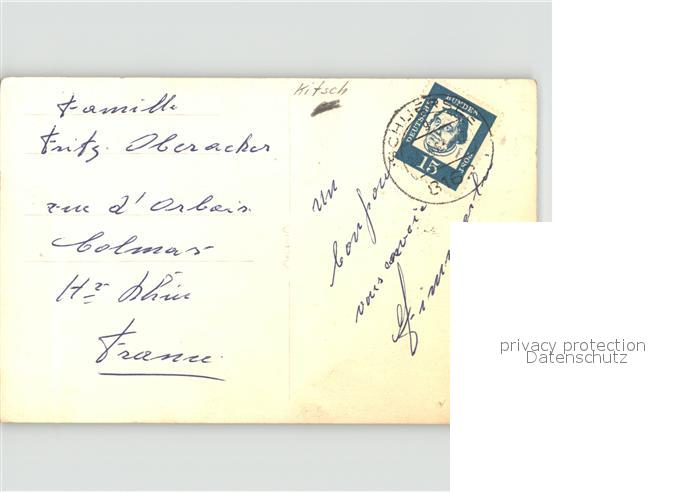 Kitsch
Famille
Fritz Oberacker
rue d'Orbais
Colmar
Ht Rhin
France
DEUTSCHE BUNDESPOST
15
un
bonjour
vous envoie
privacy protection
Datenschutz